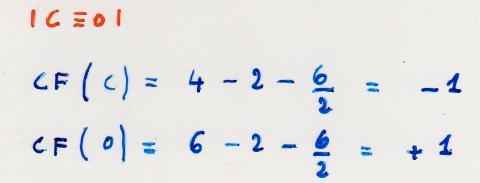 |C≡O|
CF(C) = 4 - 2 - 6/2 = -1
CF(O) = 6 - 2 - 6/2 = +1